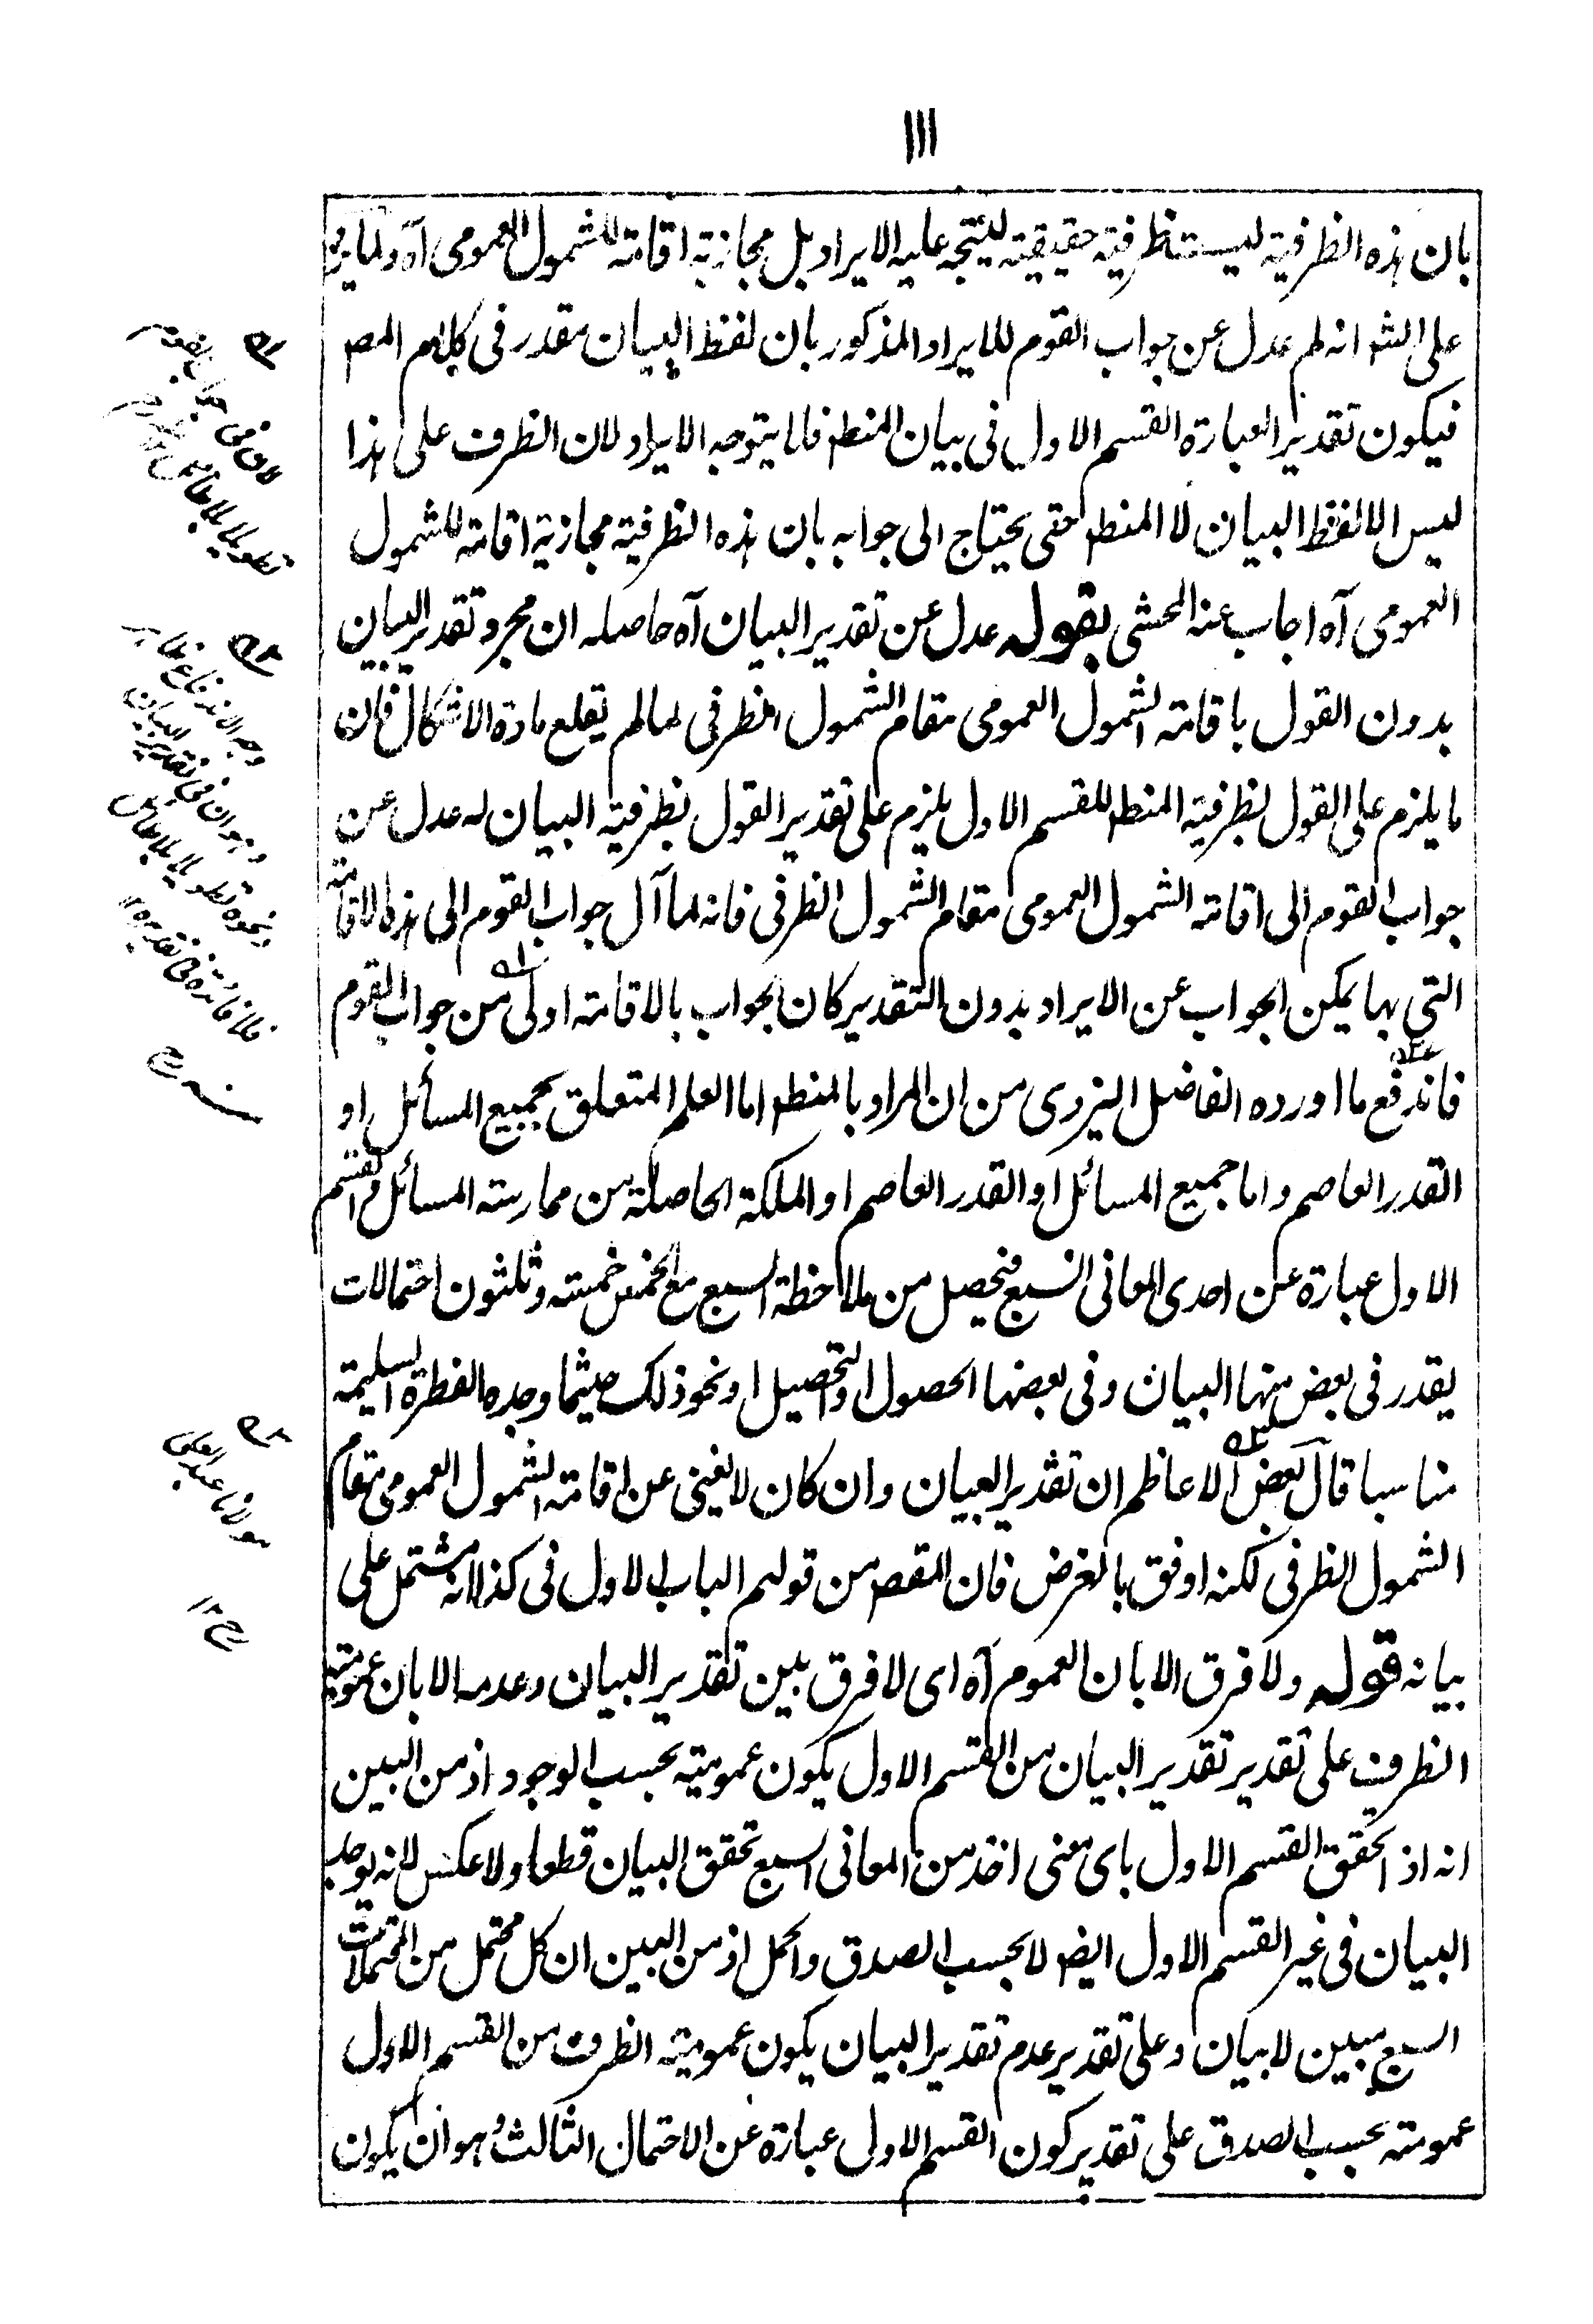 ١١١
بان هذه الظرفية ليست ظرفية حقيقية ليتجه عليه الايراد بل مجازية اقامة للشمول العمومى آه ولما يرد
على الشه انه لم عدل عن جواب القوم للايراد المذكور بان لفظ البيان مقدر فى كلام المص
فيكون تقدير العبارة القسم الاول فى بيان المنطه فلا يتوجه الايراد لان الظرف على هذا
ليس الا لفظ البيان لا المنطه حتى يحتاج الى جوابه بان هذه الظرفية مجازية اقامة للشمول
العمومى آه اجاب عنه المحشى بقوله عدل عن تقدير البيان آه حاصله ان مجرد تقدير البيان
بدون القول باقامة الشمول العمومى مقام الشمول الظرفى لما لم يقلع مادة الاشكال فان
ما يلزم على القول بظرفية المنطه للقسم الاول يلزم على تقدير القول بظرفية البيان له عدل عن
جواب القوم الى اقامة الشمول العمومى مقام الشمول الظرفى فانه لما آل جواب القوم الى هذه الاقامة
التى بها يمكن الجواب عن الايراد بدون التقدير كان الجواب بالاقامة اولى من جواب القوم
فاندفع ما اورده الفاضل اليزدى من ان المراد بالمنطه اما العلم المتعلق بجميع المسائل او
القدر العاصم واما جميع المسائل او القدر العاصم او الملكة الحاصلة من ممارسة المسائل والقسم
الاول عبارة عن احدى المعانى السبع فيحصل من ملاحظة السبع مع الخمس خمسة وثلثون احتمالات
يقدر فى بعض منها البيان وفى بعضها الحصول او التحصيل او نحو ذلك حيثما وجده الفطرة السليمة
مناسبا قال بعض الاعاظم ان تقدير البيان وان كان لا يغنى عن اقامة الشمول العمومى مقام
الشمول الظرفى لكنه اوفق بالغرض فان المقصه من قولهم الباب الاول فى كذا انه مشتمل على
بيانه قوله ولا فرق الا بان العموم آه اى لا فرق بين تقدير البيان وعدمه الا بان عمومية
الظرف على تقدير تقدير البيان من القسم الاول يكون عمومية بحسب الوجود اذ من البين
انه اذا تحقق القسم الاول باى معنى اخذ من المعانى السبع تحقق البيان قطعا ولا عكس لانه يوجد
البيان فى غير القسم الاول ايضه لا بحسب الصدق والحمل اذ من البين ان كل محتمل من المحتملات
السبع مبين لا بيان وعلى تقدير عدم تقدير البيان يكون عمومية الظرف من القسم الاول
عمومية بحسب الصدق على تقدير كون القسم الاول عبارة عن الاحتمال الثالث وهو ان يكون
لان فى جواب القوم
تطويلا بلا طائل
وجه الاندفاع ظاهر
وهو ان فى تقدير البيان
ونحوه تطويلا بلا طائل
فلا فائدة فى تقديره ١٢
منه
مولانا عبد العلى
١٢